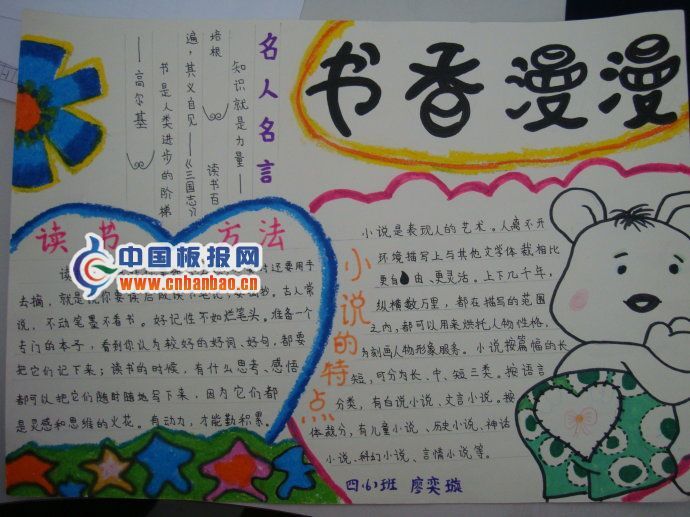 书香漫漫
名人名言
知识就是力量——
培根
读书百
遍，其义自见——《三国志》
书是人类进步的阶梯
——高尔基
读书方法
中国板报网
www.cnbanbao.cn
还要用手
去摘，就是说你要读后或读下笔记
古人常
说，不动笔墨不看书。好记性不如烂笔头。准备一个
专门的本子，看到你认为较好的好词、好句，都要
把它们记下来；读书的时候，有什么思考、感悟
都可以把它们随时随地写下来，因为它们都
是灵感和思维的火花。有动力，才能勤积累。
小说的特点
小说是表现人的艺术。人离不开
环境描写上与其他文学体裁相比
更自由、更灵活。上下几千年，
纵横数万里，都在描写的范围
之内，都可以用来烘托人物性格，
为刻画人物形象服务。小说按篇幅的长
短，可分为长、中、短三类。按语言
分类，有白说小说、文言小说。按
体裁分，有儿童小说、历史小说、神话
小说、科幻小说、言情小说等。
四（6）班 廖奕璇